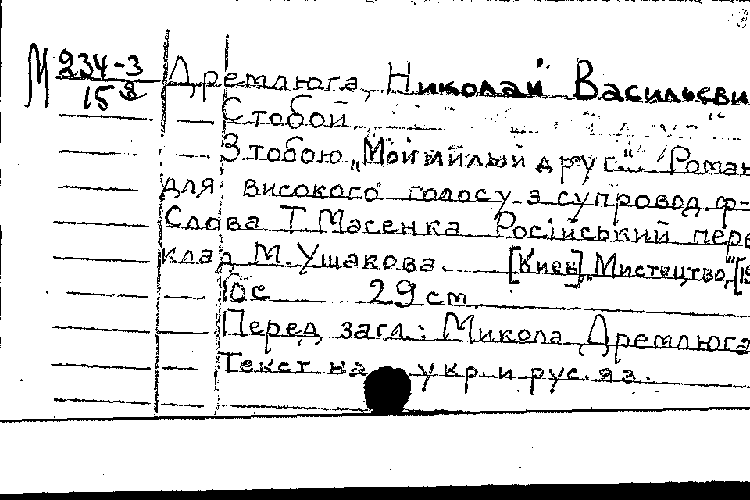 М 234-3
15
Дремлюга, Николай Васильеви
С тобой
З тобою „Мой милый друг“ Роман
для високого голосу з супровод. ф-
Слова Т. Масенка Російський пере
клад М. Ушакова. [Киев], „Мистецтво“, [19
6с 29 см
Перед загл.: Микола Дремлюга
Текст на укр. и рус. яз.